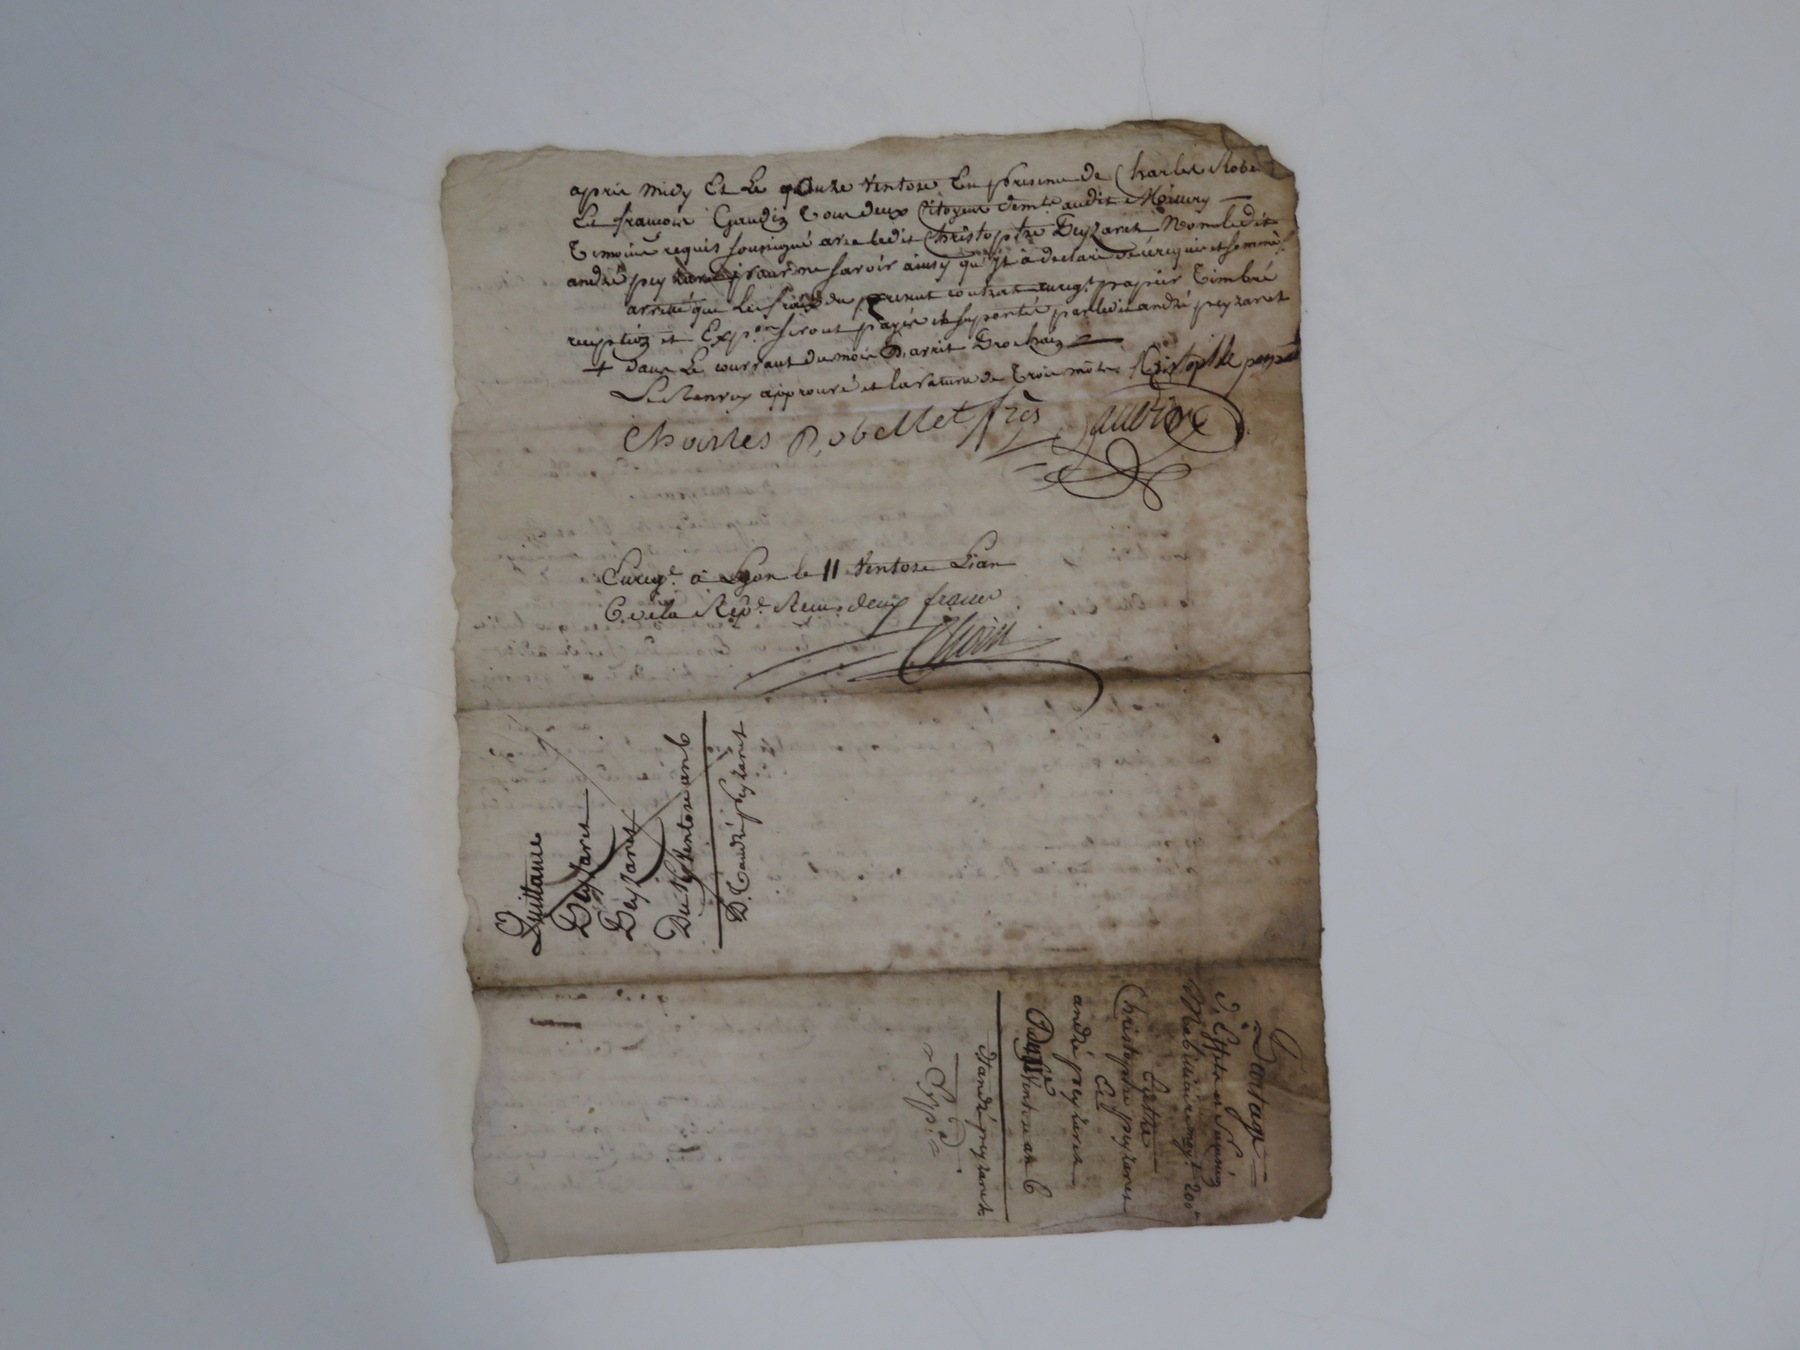 après midy Et Le onze Ventose En présence de Charles Robe
Et francois Gaudin Tous deux Citoyens audit Mornry
Temoins requis soussigné avec ledit Christophe Peyzaret Non ledit
andré peyzaret pour ne savoir ainsy qu'il a declaré de ce requis et sommé
arrêté que Les frais du présent contrat enreg.t papier Timbré
reception et Exp.on seront payés et suportés par ledit andré peyzaret
+ dans Le courrant du mois prochain
Le Renvoy approuvé et la rature de Trois mots. Cristophle
Charles Robellet frcs Gaudin
Enreg.é à Lyon le 11 Ventose Lan
6 de la Rép.e Reçu deux francs
Quittance
Peyzaret
Peyzaret
Du Ventose an 6
D. andré peyzaret
Partage
d'Effets
Mobiliaire moy.t 200
Entre
Christophe peyzaret
Et
andré peyzaret
Du 11 Ventose an 6
d andré peyzaret
Exp.é